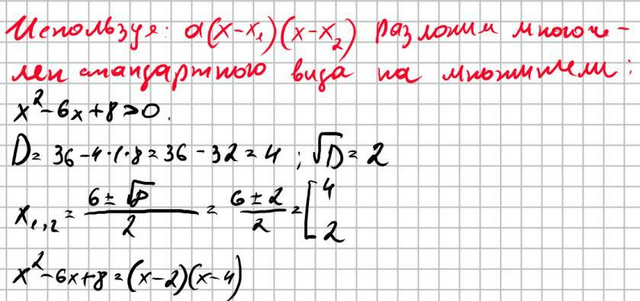 Используя: a(x-x₁)(x-x₂) разложим многоч-
лен стандартного вида на множители:
x²-6x+8>0.
D= 36-4·1·8=36-32=4 ; √D=2
x₁,₂= (6±√D)/2 = (6±2)/2 = [4 2
x²-6x+8=(x-2)(x-4)